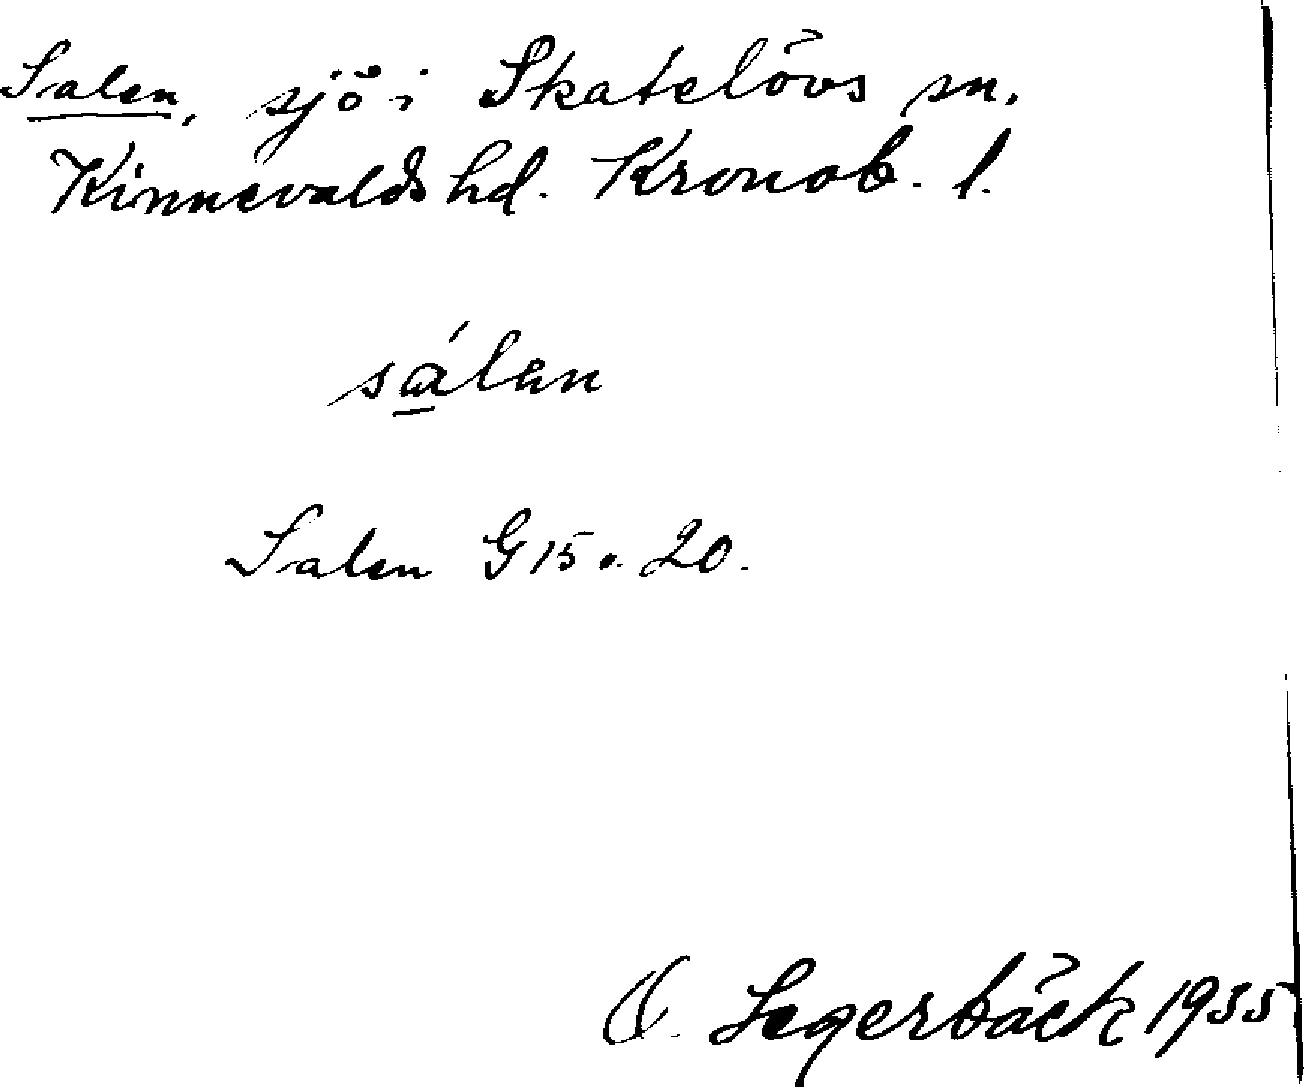 Salen, sjö i Skatelövs sn.
Kinnevalds hd. Kronob. l.
sálen
Salen G 15 o. 20.
O. Segerbäck 1935